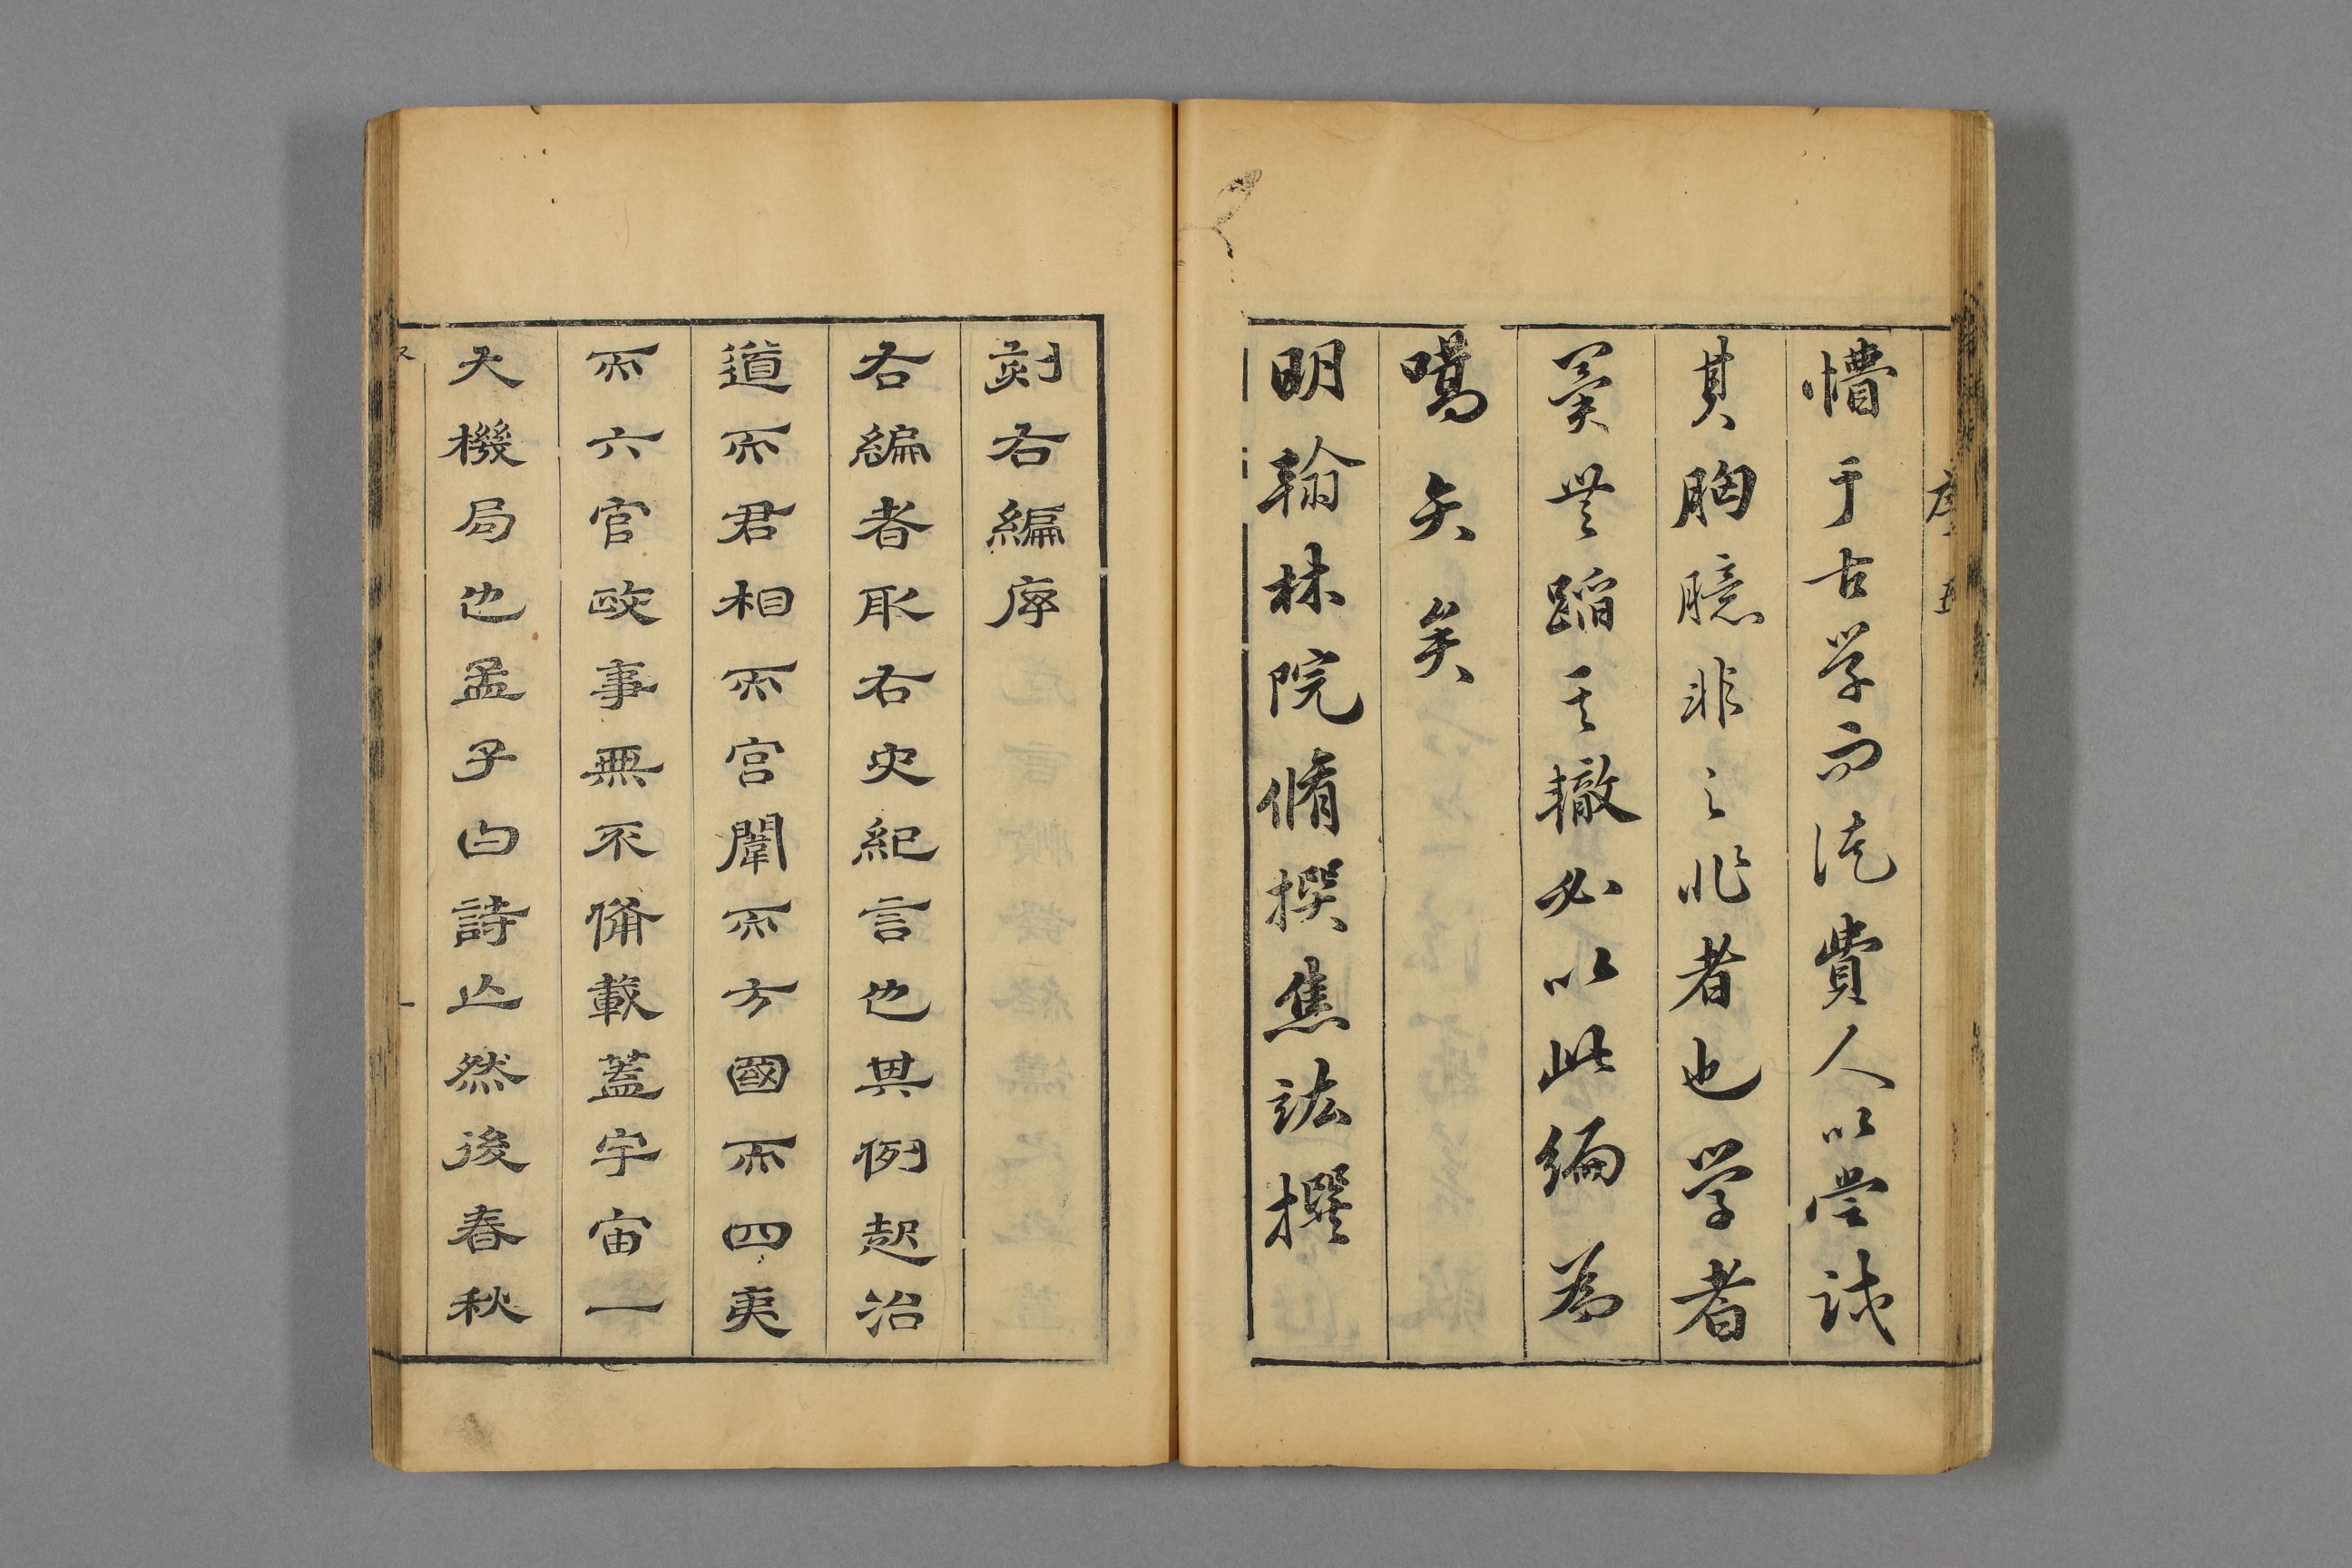 序 五
懵于古学而徒費人以嘗試
其胸臆非之非者也学者
冀無蹈其轍必以此編為
嚆矢矣
明翰林院脩撰焦竑撰
刻右編序
右編者取右史紀言也其例起治
道而君相而宮闈而方國而四夷
而六官政事無不備載蓋宇宙一
大機局也孟子曰詩亡然後春秋